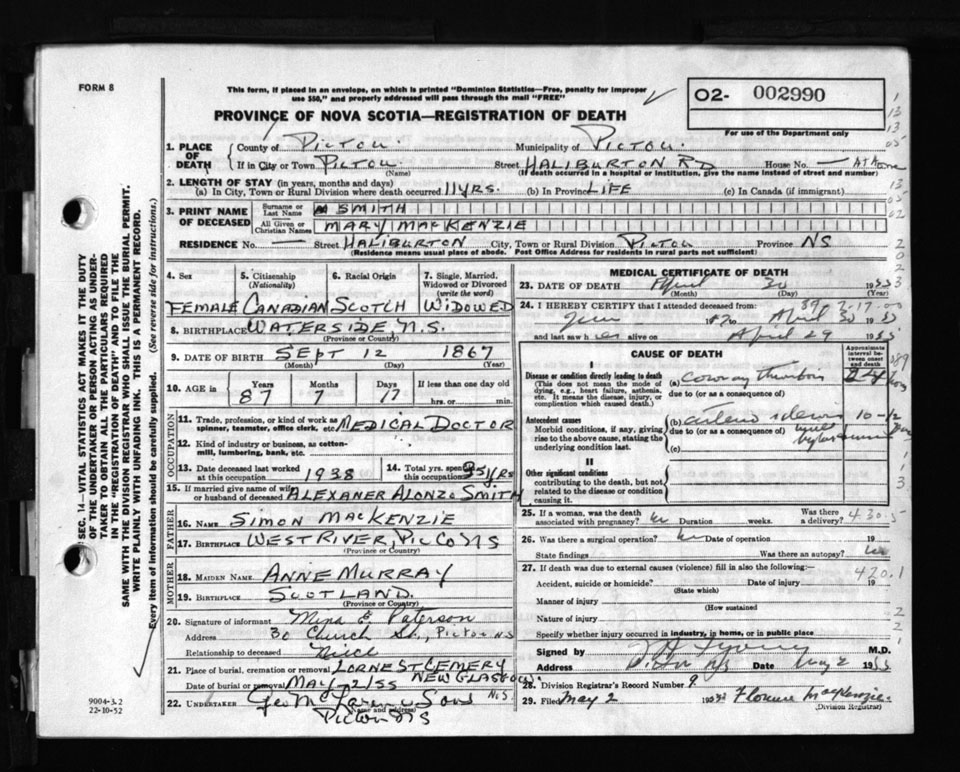 FORM 8
This form, if placed in an envelope, on which is printed "Dominion Statistics—Free, penalty for improper
use $50," and properly addressed will pass through the mail "FREE"
PROVINCE OF NOVA SCOTIA—REGISTRATION OF DEATH
02- 002990
For use of the Department only
1. PLACE OF DEATH County of PICTOU Municipality of PICTOU
If in City or Town PICTOU Street HALIBURTON RD House No. —
(Name) (If death occurred in a hospital or institution, give the name instead of street and number)
2. LENGTH OF STAY (in years, months and days)
(a) In City, Town or Rural Division where death occurred 11 YRS. (b) In Province LIFE (c) In Canada (if immigrant)
3. PRINT NAME OF DECEASED Surname or Last Name SMITH
All Given or Christian Names MARY MACKENZIE
RESIDENCE No. — Street HALIBURTON City, Town or Rural Division PICTOU Province NS
(Residence means usual place of abode. Post Office Address for residents in rural parts not sufficient)
4. Sex 5. Citizenship (Nationality) 6. Racial Origin 7. Single, Married, Widowed or Divorced (write the word)
FEMALE CANADIAN SCOTCH WIDOWED
8. BIRTHPLACE WATERSIDE N.S.
(Province or Country)
9. DATE OF BIRTH SEPT 12 1867
(Month) (Day) (Year)
10. AGE in Years Months Days If less than one day old
87 7 17 hrs. or min.
OCCUPATION
11. Trade, profession, or kind of work as spinner, teamster, office clerk, etc. MEDICAL DOCTOR
12. Kind of industry or business, as cotton-mill, lumbering, bank, etc.
13. Date deceased last worked at this occupation 1938 14. Total yrs. spent this occupation 35 YRS
15. If married give name of wife or husband of deceased ALEXANER ALONZO SMITH
FATHER
16. NAME SIMON MACKENZIE
17. BIRTHPLACE WEST RIVER, PIC CO NS
(Province or Country)
MOTHER
18. MAIDEN NAME ANNE MURRAY
19. BIRTHPLACE SCOTLAND.
(Province or Country)
20. Signature of informant Mina E Paterson
Address 30 Church St., PICTOU NS
Relationship to deceased Niece
21. Place of burial, cremation or removal LORNE ST CEMERY
NEW GLASGOW NS
Date of burial or removal MAY 2/55
22. UNDERTAKER Geo McLaren & Sons
(Name and address)
PICTOU NS
MEDICAL CERTIFICATE OF DEATH
23. DATE OF DEATH April 30 1955
(Month) (Day) (Year)
24. I HEREBY CERTIFY that I attended deceased from:
April 30 1955
and last saw her alive on April 29 1955
CAUSE OF DEATH
Approximate interval between onset and death
I
Disease or condition directly leading to death
(This does not mean the mode of dying, e.g., heart failure, asthenia, etc. It means the disease, injury, or complication which caused death.)
(a)
due to (or as a consequence of)
Antecedent causes
Morbid conditions, if any, giving rise to the above cause, stating the underlying condition last.
(b) 10-12
due to (or as a consequence of)
(c)
II
Other significant conditions
contributing to the death, but not related to the disease or condition causing it.
25. If a woman, was the death associated with pregnancy? no Duration weeks. Was there a delivery? 430.5
26. Was there a surgical operation? no Date of operation 19
State findings Was there an autopsy? no
27. If death was due to external causes (violence) fill in also the following:— 420.1
Accident, suicide or homicide? Date of injury 19
(State which)
Manner of injury
(How sustained
Nature of injury
Specify whether injury occurred in industry, in home, or in public place
Signed by M.D.
Address Pictou NS Date May 2 1955
28. Division Registrar's Record Number 9
29. Filed May 2 1955 Florence MacKenzie
(Division Registrar)
SEC. 14—VITAL STATISTICS ACT MAKES IT THE DUTY
OF THE UNDERTAKER OR PERSON ACTING AS UNDER-
TAKER TO OBTAIN ALL THE PARTICULARS REQUIRED
IN THE "REGISTRATION OF DEATH" AND TO FILE THE
SAME WITH THE DIVISION REGISTRAR WHO SHALL ISSUE THE BURIAL PERMIT.
WRITE PLAINLY WITH UNFADING INK. THIS IS A PERMANENT RECORD.
Every item of information should be carefully supplied. (See reverse side for instructions.)
9004-3.2
22-10-52